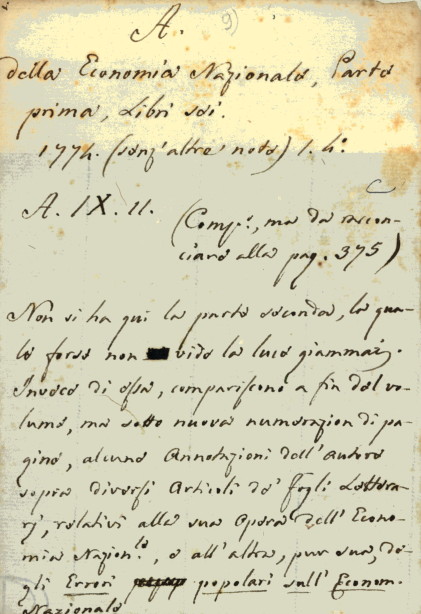 9)
A.
della Economia Nazionale, Parte
prima, Libri sei.
1774. (senz'altre note) 1. 4.°
C
A. IX. 11.
(Comp.°, ma da raccon-
ciare alla pag. 375)
Non si ha qui la parte seconda, la qua-
le forse non vide la luce giammai.
Invece di essa, compariscono a fin del vo-
lume, ma sotto nuova numerazion di pa-
gine, alcune Annotazioni dell'autore
sopra diversi Articoli de' fogli Lettera-
rj, relativi alla sua Opera dell'Econo-
mia Nazion.le, e all'altra, pur sua, de-
gli Errori popolari sull'Econom.
Nazionale